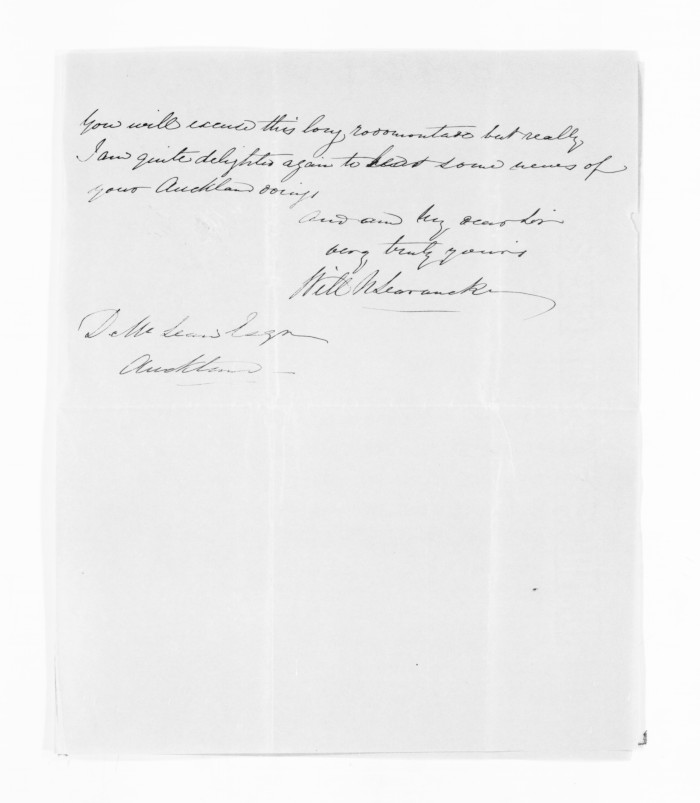 You will excuse this long rodomontade but really
I am quite delighted again to hear some news of
your Auckland doings
and am my dear Sir
very truly yours
Will N Searancke
D. McLean Esqr
Auckland